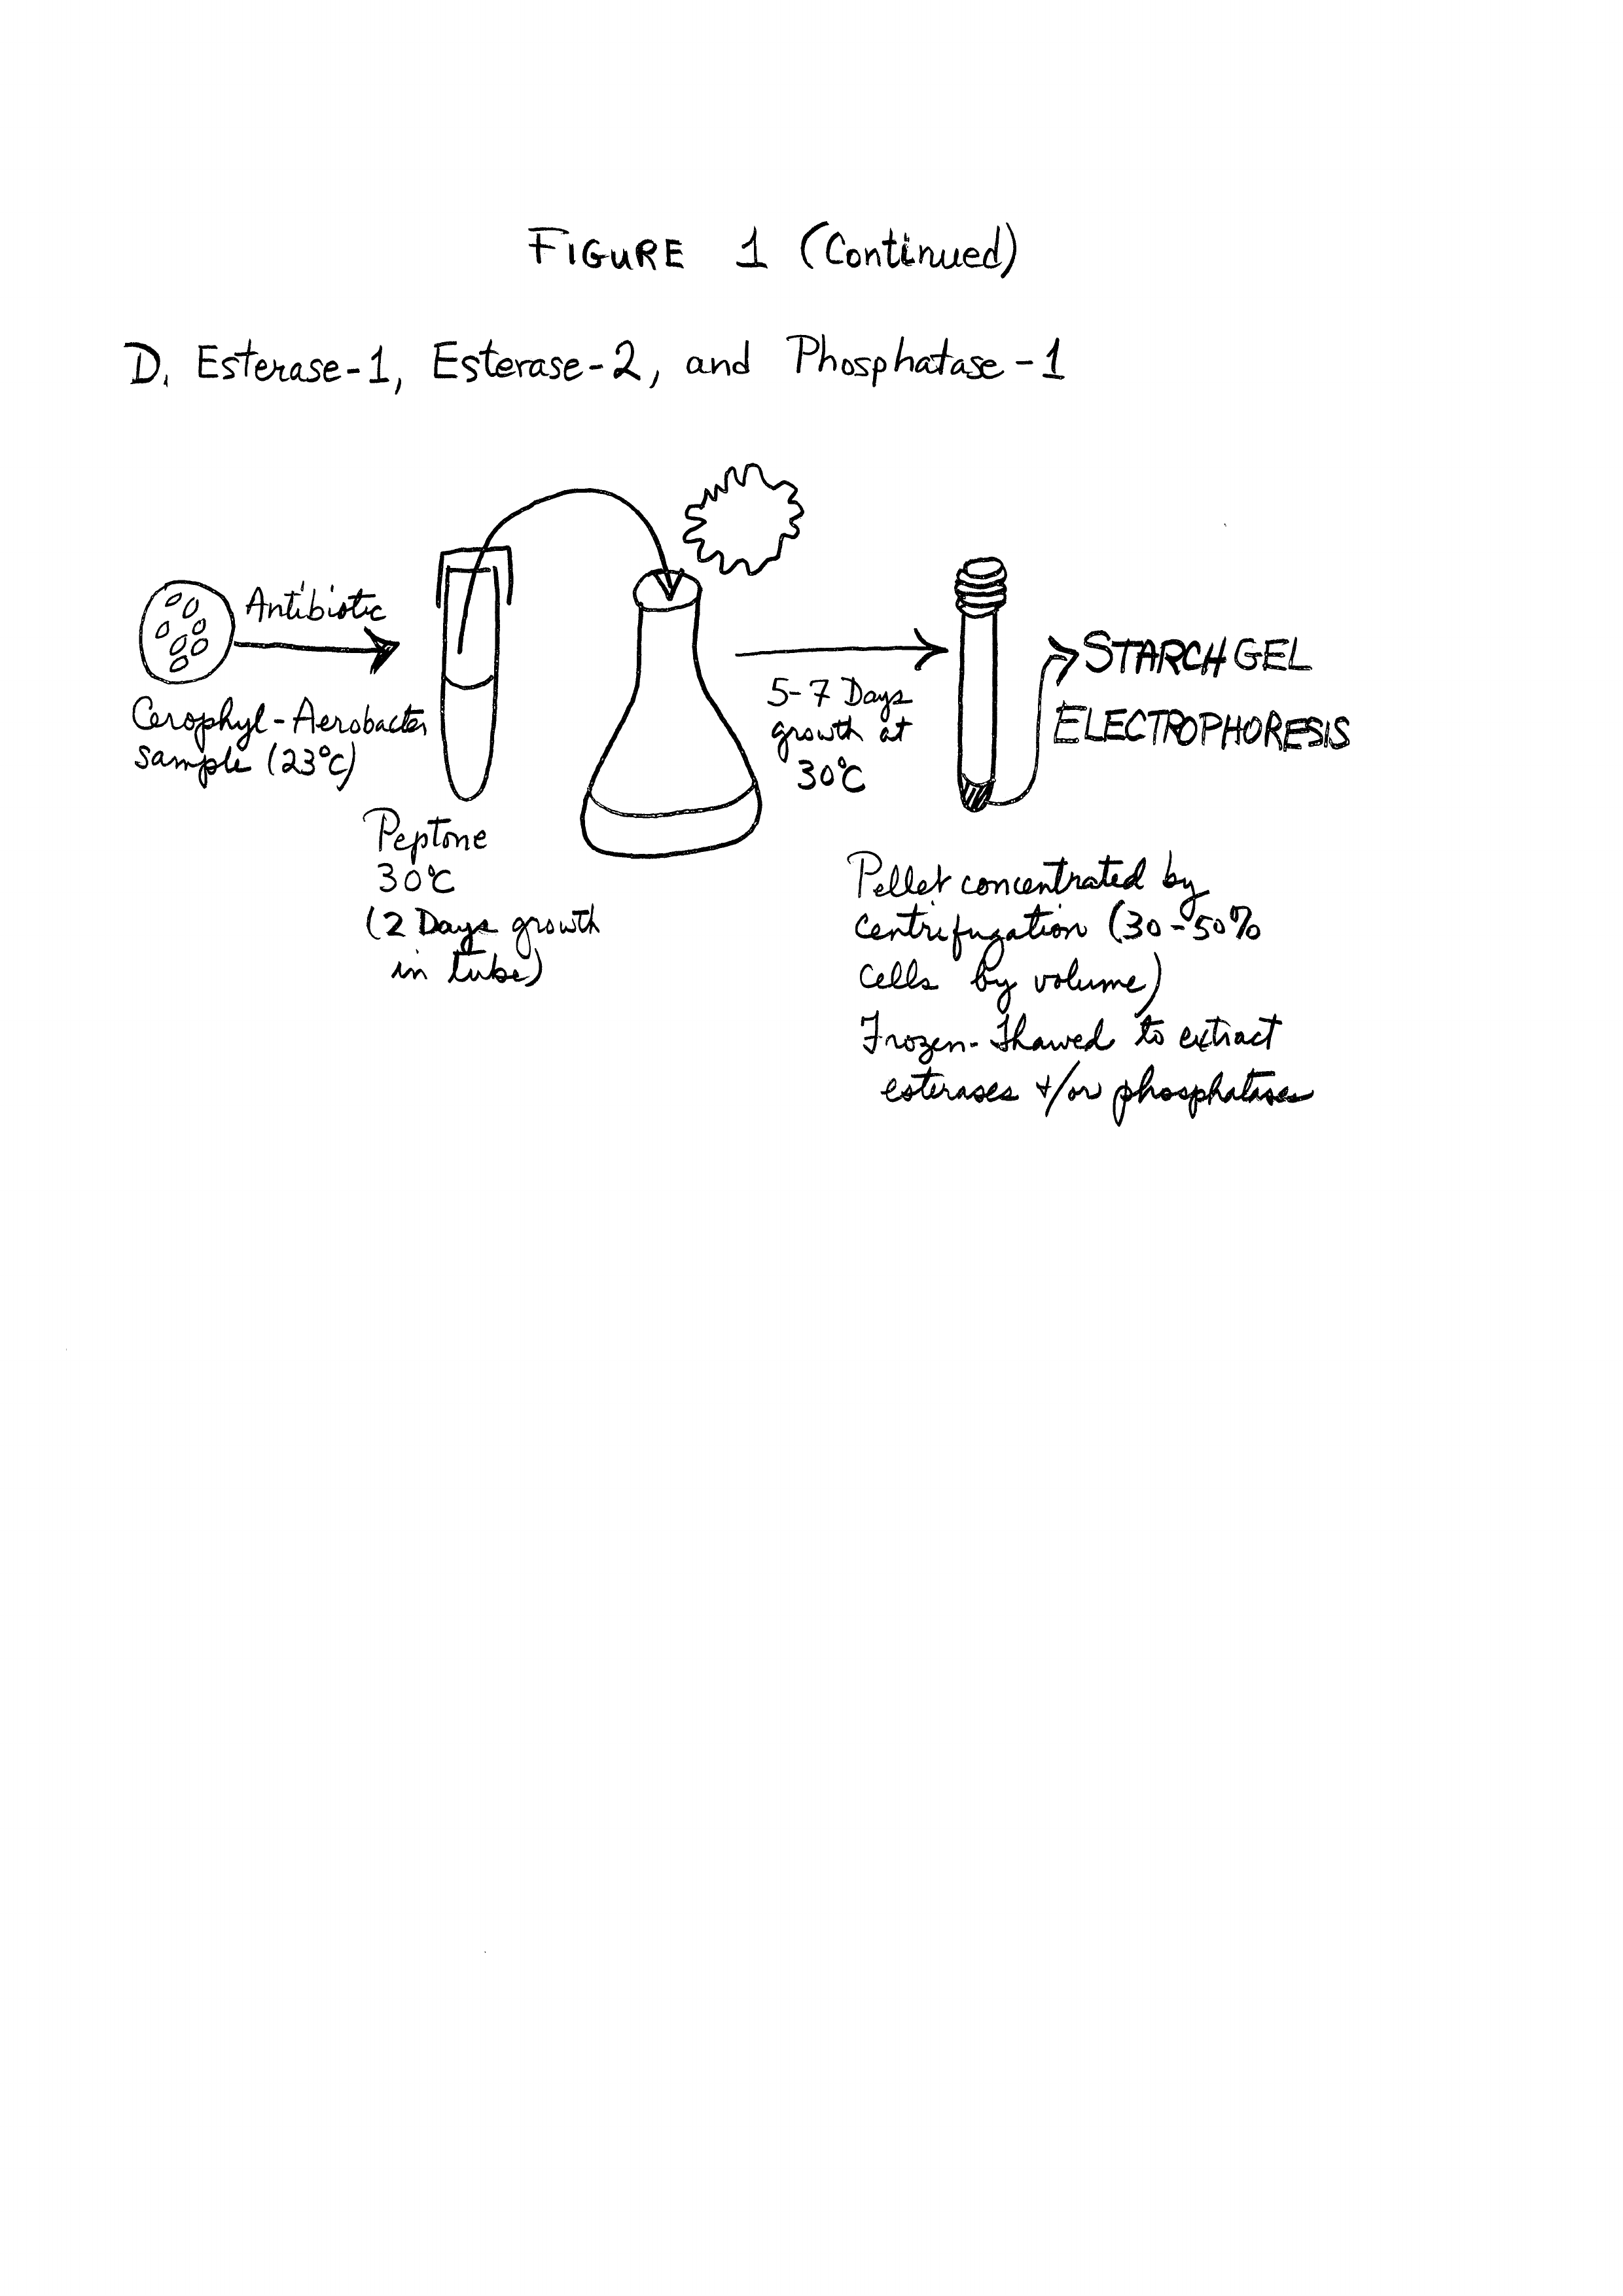 FIGURE 1 (Continued)
D. Esterase-1, Esterase-2, and Phosphatase-1
Antibiotic
Cerophyl-Aerobacter
sample (23°C)
Peptone
30°C
(2 Days growth
in tube)
5-7 Days
growth at
30°C
STARCH GEL
ELECTROPHORESIS
Pellet concentrated by
centrifugation (30-50%
cells by volume)
Frozen-Thawed to extract
esterases +/or phosphatases